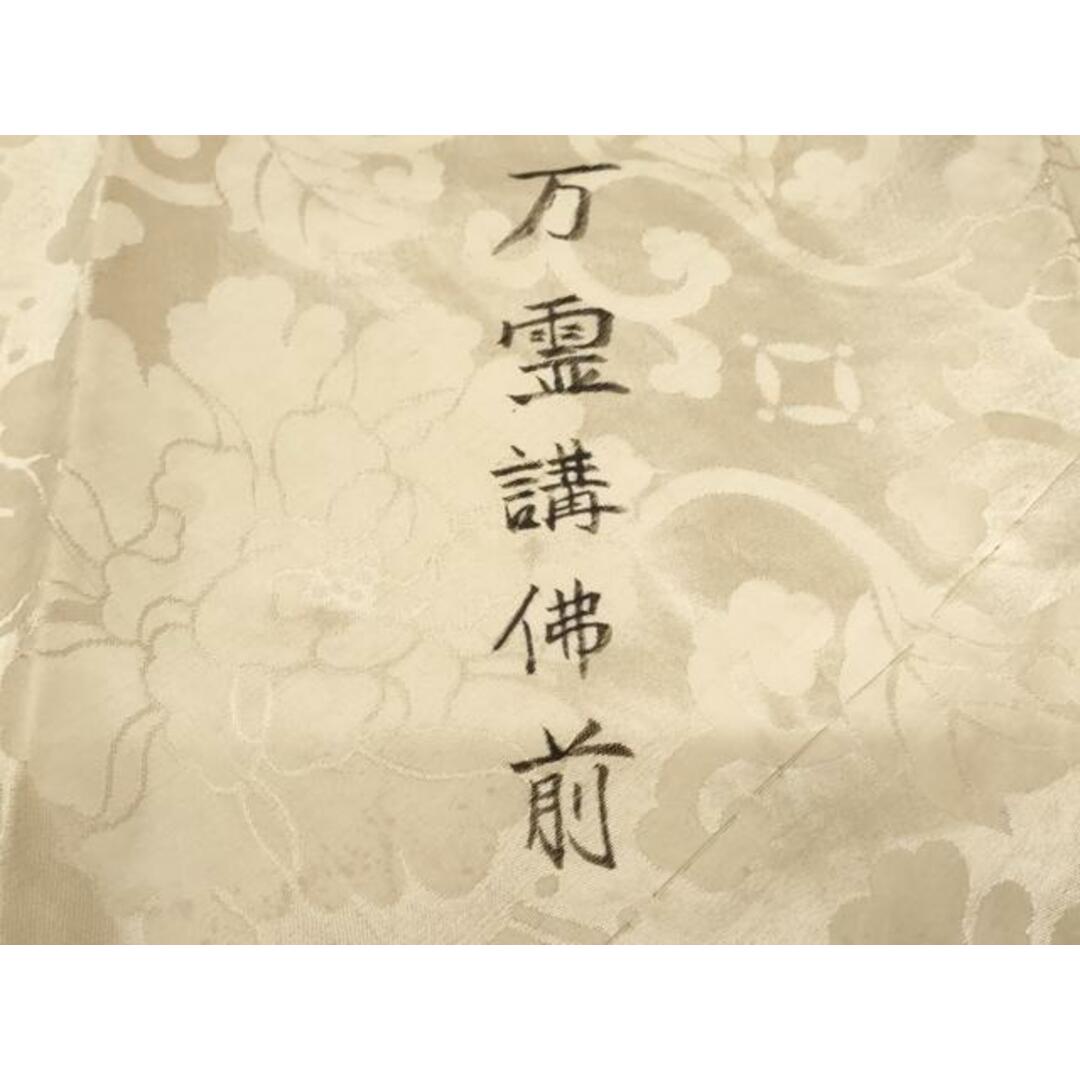 万霊講佛前